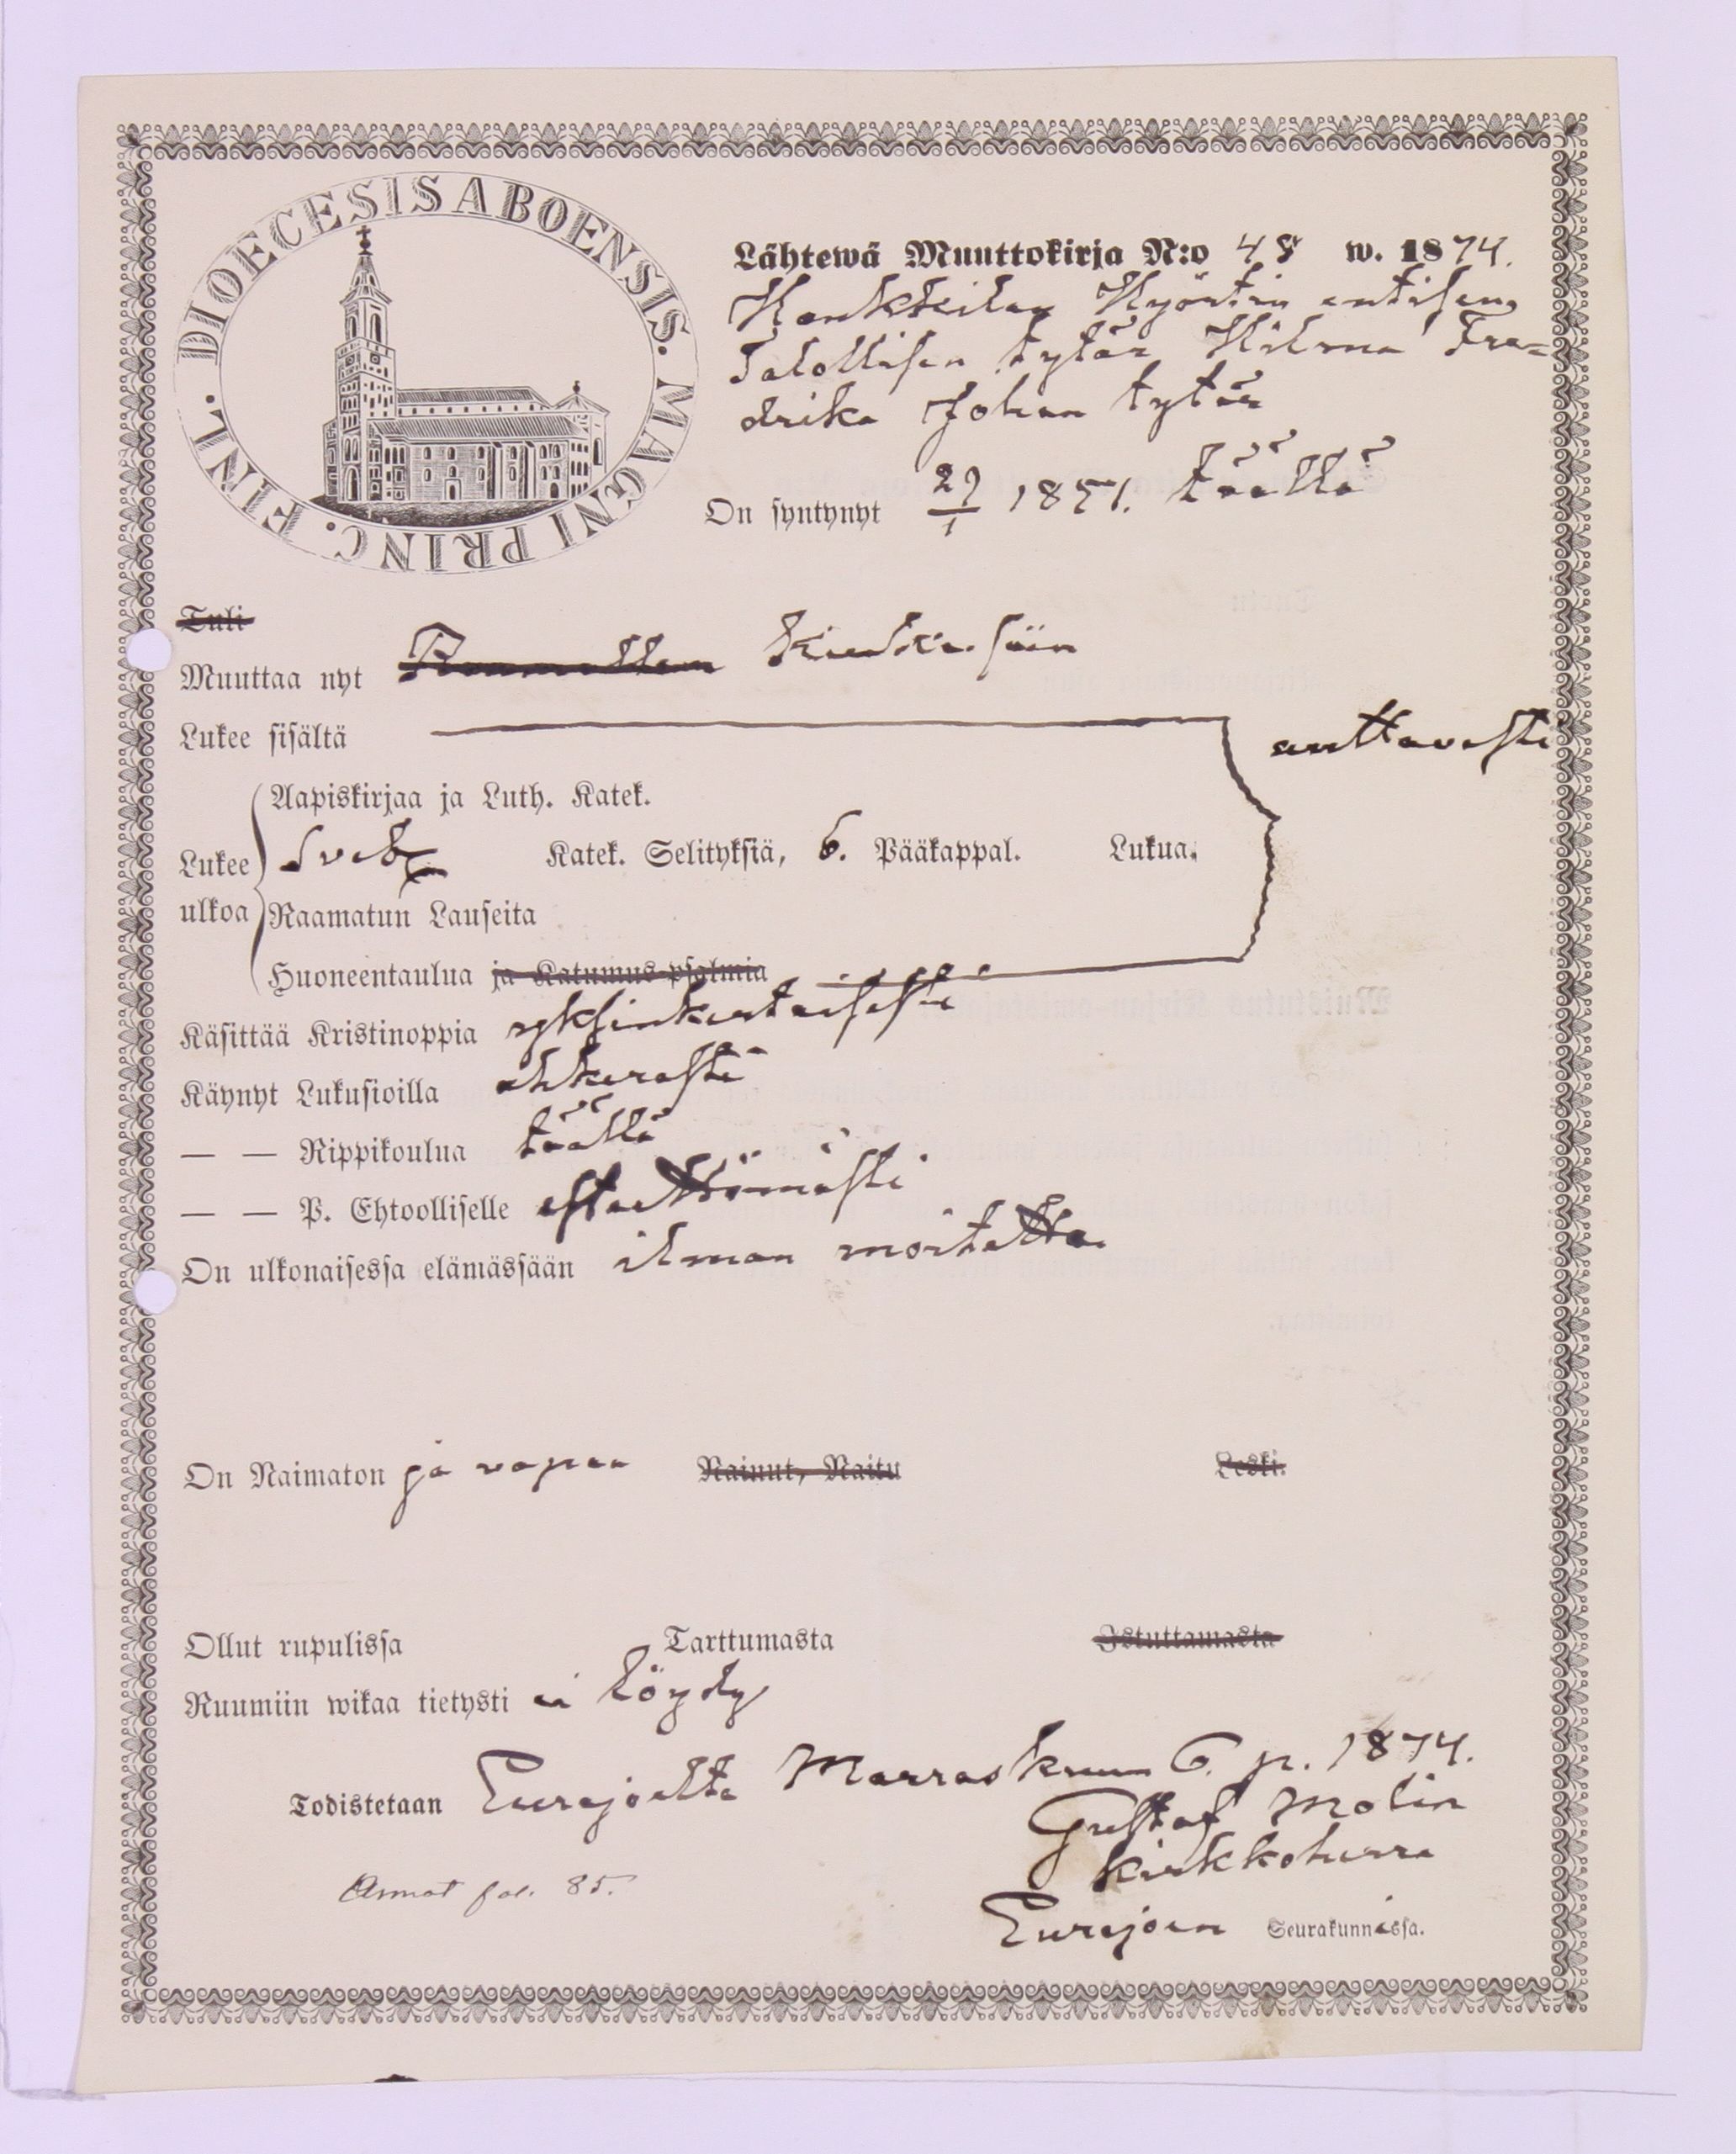 DIOECESIS ABOENSIS. MAGNI PRINC. FINL.
Lähtewä Muuttokirja N:o 48 w. 1874.
Hankkilan Hyörtin entisen
Talollisen tytär Hilma Fre-
drika Johan tytär
On syntynyt 29/1 1851. täällä
Tuli
Muuttaa nyt Kiukaisiin
Lukee sisältä auttavasti
Aapiskirjaa ja Luth. Katek.
Lukee ulkoa Sveb. Katek. Selityksiä, 6. Pääkappal. Lukua.
Raamatun Lauseita
Huoneentaulua ja Katumus-psalmia
Käsittää Kristinoppia yksinkertaisesti
Käynyt Lukusioilla ahkerasti
— — Rippikoulua täällä
— — P. Ehtoolliselle estaettömästi
On ulkonaisessa elämässään ilman moitetta
On Naimaton ja vapaa Nainut, Naitu Leski.
Ollut rupulissa Tarttumasta Istuttamasta
Ruumiin wikaa tietysti ei löydy
Todistetaan Eurajoelta Marraskuun 6. p. 1874.
Gustaf Molin
kirkkoherra
Annot fol. 85.
Eurajoen Seurakunnassa.